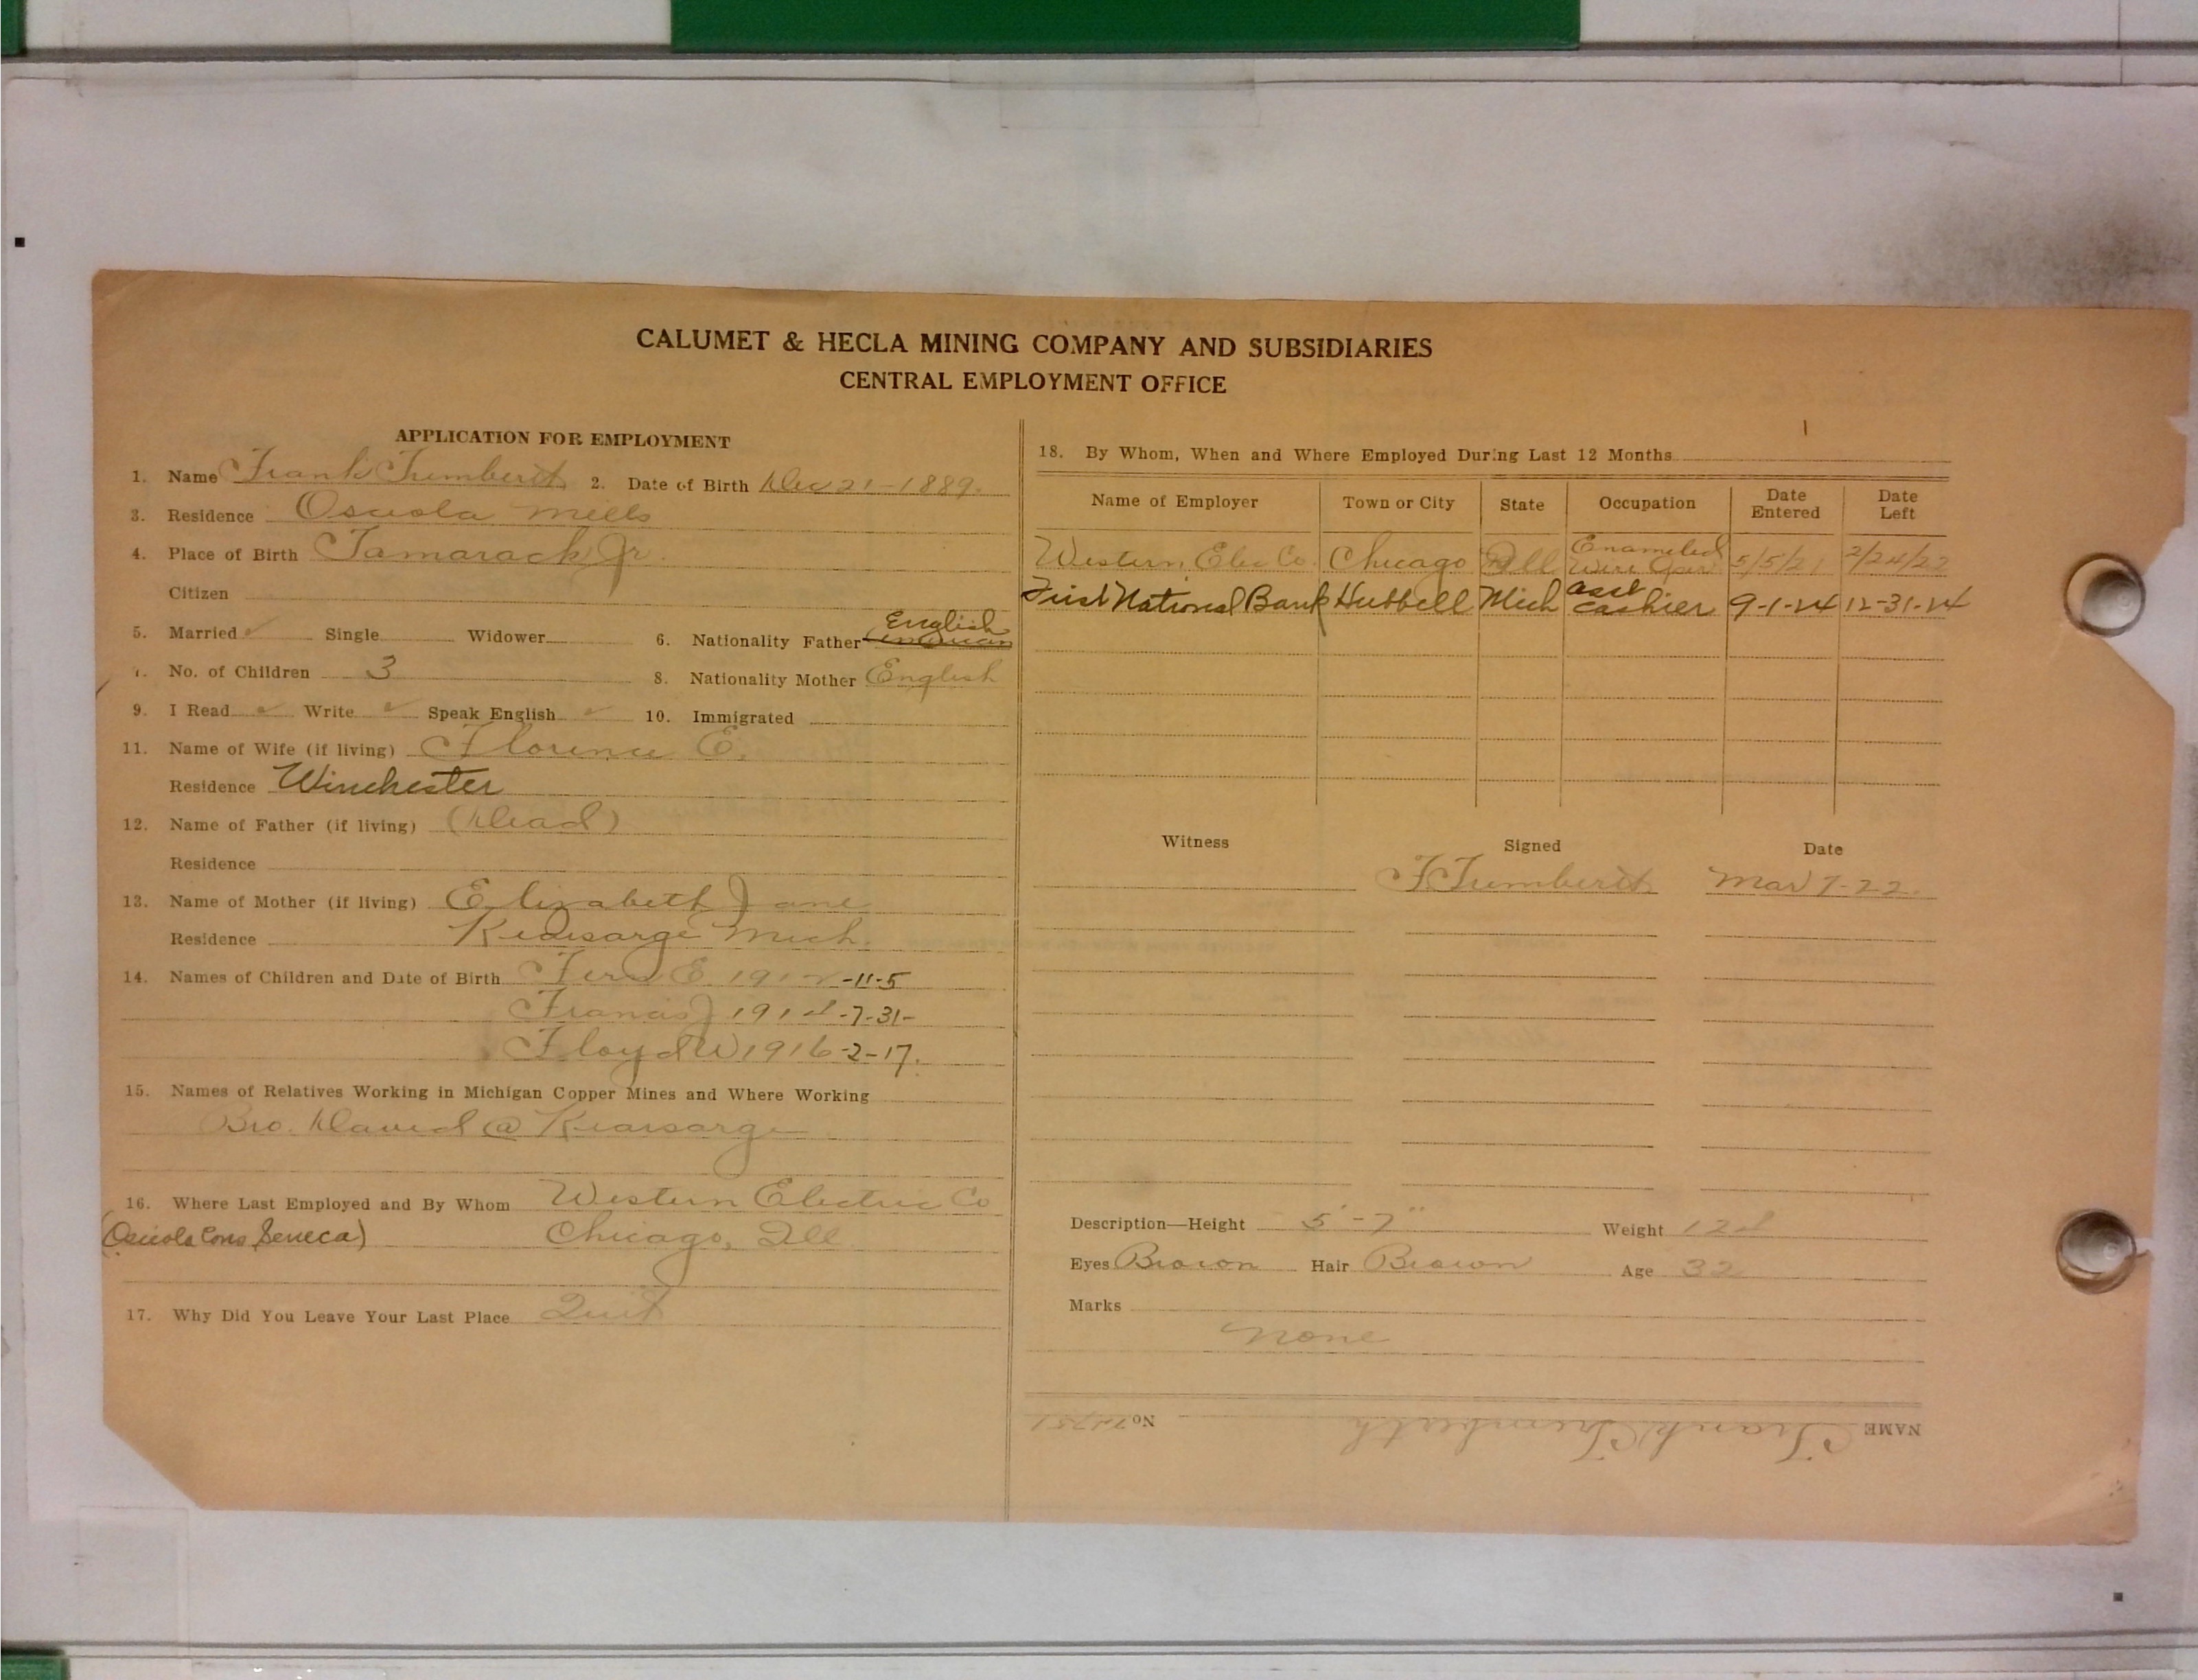 CALUMET & HECLA MINING COMPANY AND SUBSIDIARIES
CENTRAL EMPLOYMENT OFFICE
APPLICATION FOR EMPLOYMENT
1. Name Frank 2. Date of Birth Dec 21-1889.
3. Residence Osceola Mills
4. Place of Birth Tamarack Jr.
Citizen
5. Married ✓ Single Widower 6. Nationality Father English
7. No. of Children 3 8. Nationality Mother English
9. I Read ✓ Write ✓ Speak English ✓ 10. Immigrated
11. Name of Wife (if living) Florence E.
Residence Winchester
12. Name of Father (if living) (Dead)
Residence
13. Name of Mother (if living) Elizabeth Jane
Residence Kearsarge Mich.
14. Names of Children and Date of Birth Fern E. 1912-11-5
Francis J 1914-7-31-
Floyd W 1916-2-17.
15. Names of Relatives Working in Michigan Copper Mines and Where Working
Bro. David @ Kearsarge
16. Where Last Employed and By Whom Western Electric Co
(Osceola Cons Seneca) Chicago, Ill
17. Why Did You Leave Your Last Place Quit
18. By Whom, When and Where Employed During Last 12 Months
Name of Employer Town or City State Occupation Date Entered Date Left
Western Elec Co. Chicago Ill Enameled Wire 5/5/21 2/24/22
First National Bank Hubbell Mich Asst Cashier 9-1-24 12-31-24
Witness Signed Date
Mar 7-22.
Description—Height 5'-7" Weight 124
Eyes Brown Hair Brown Age 32
Marks
None
NAME Frank Trembath No